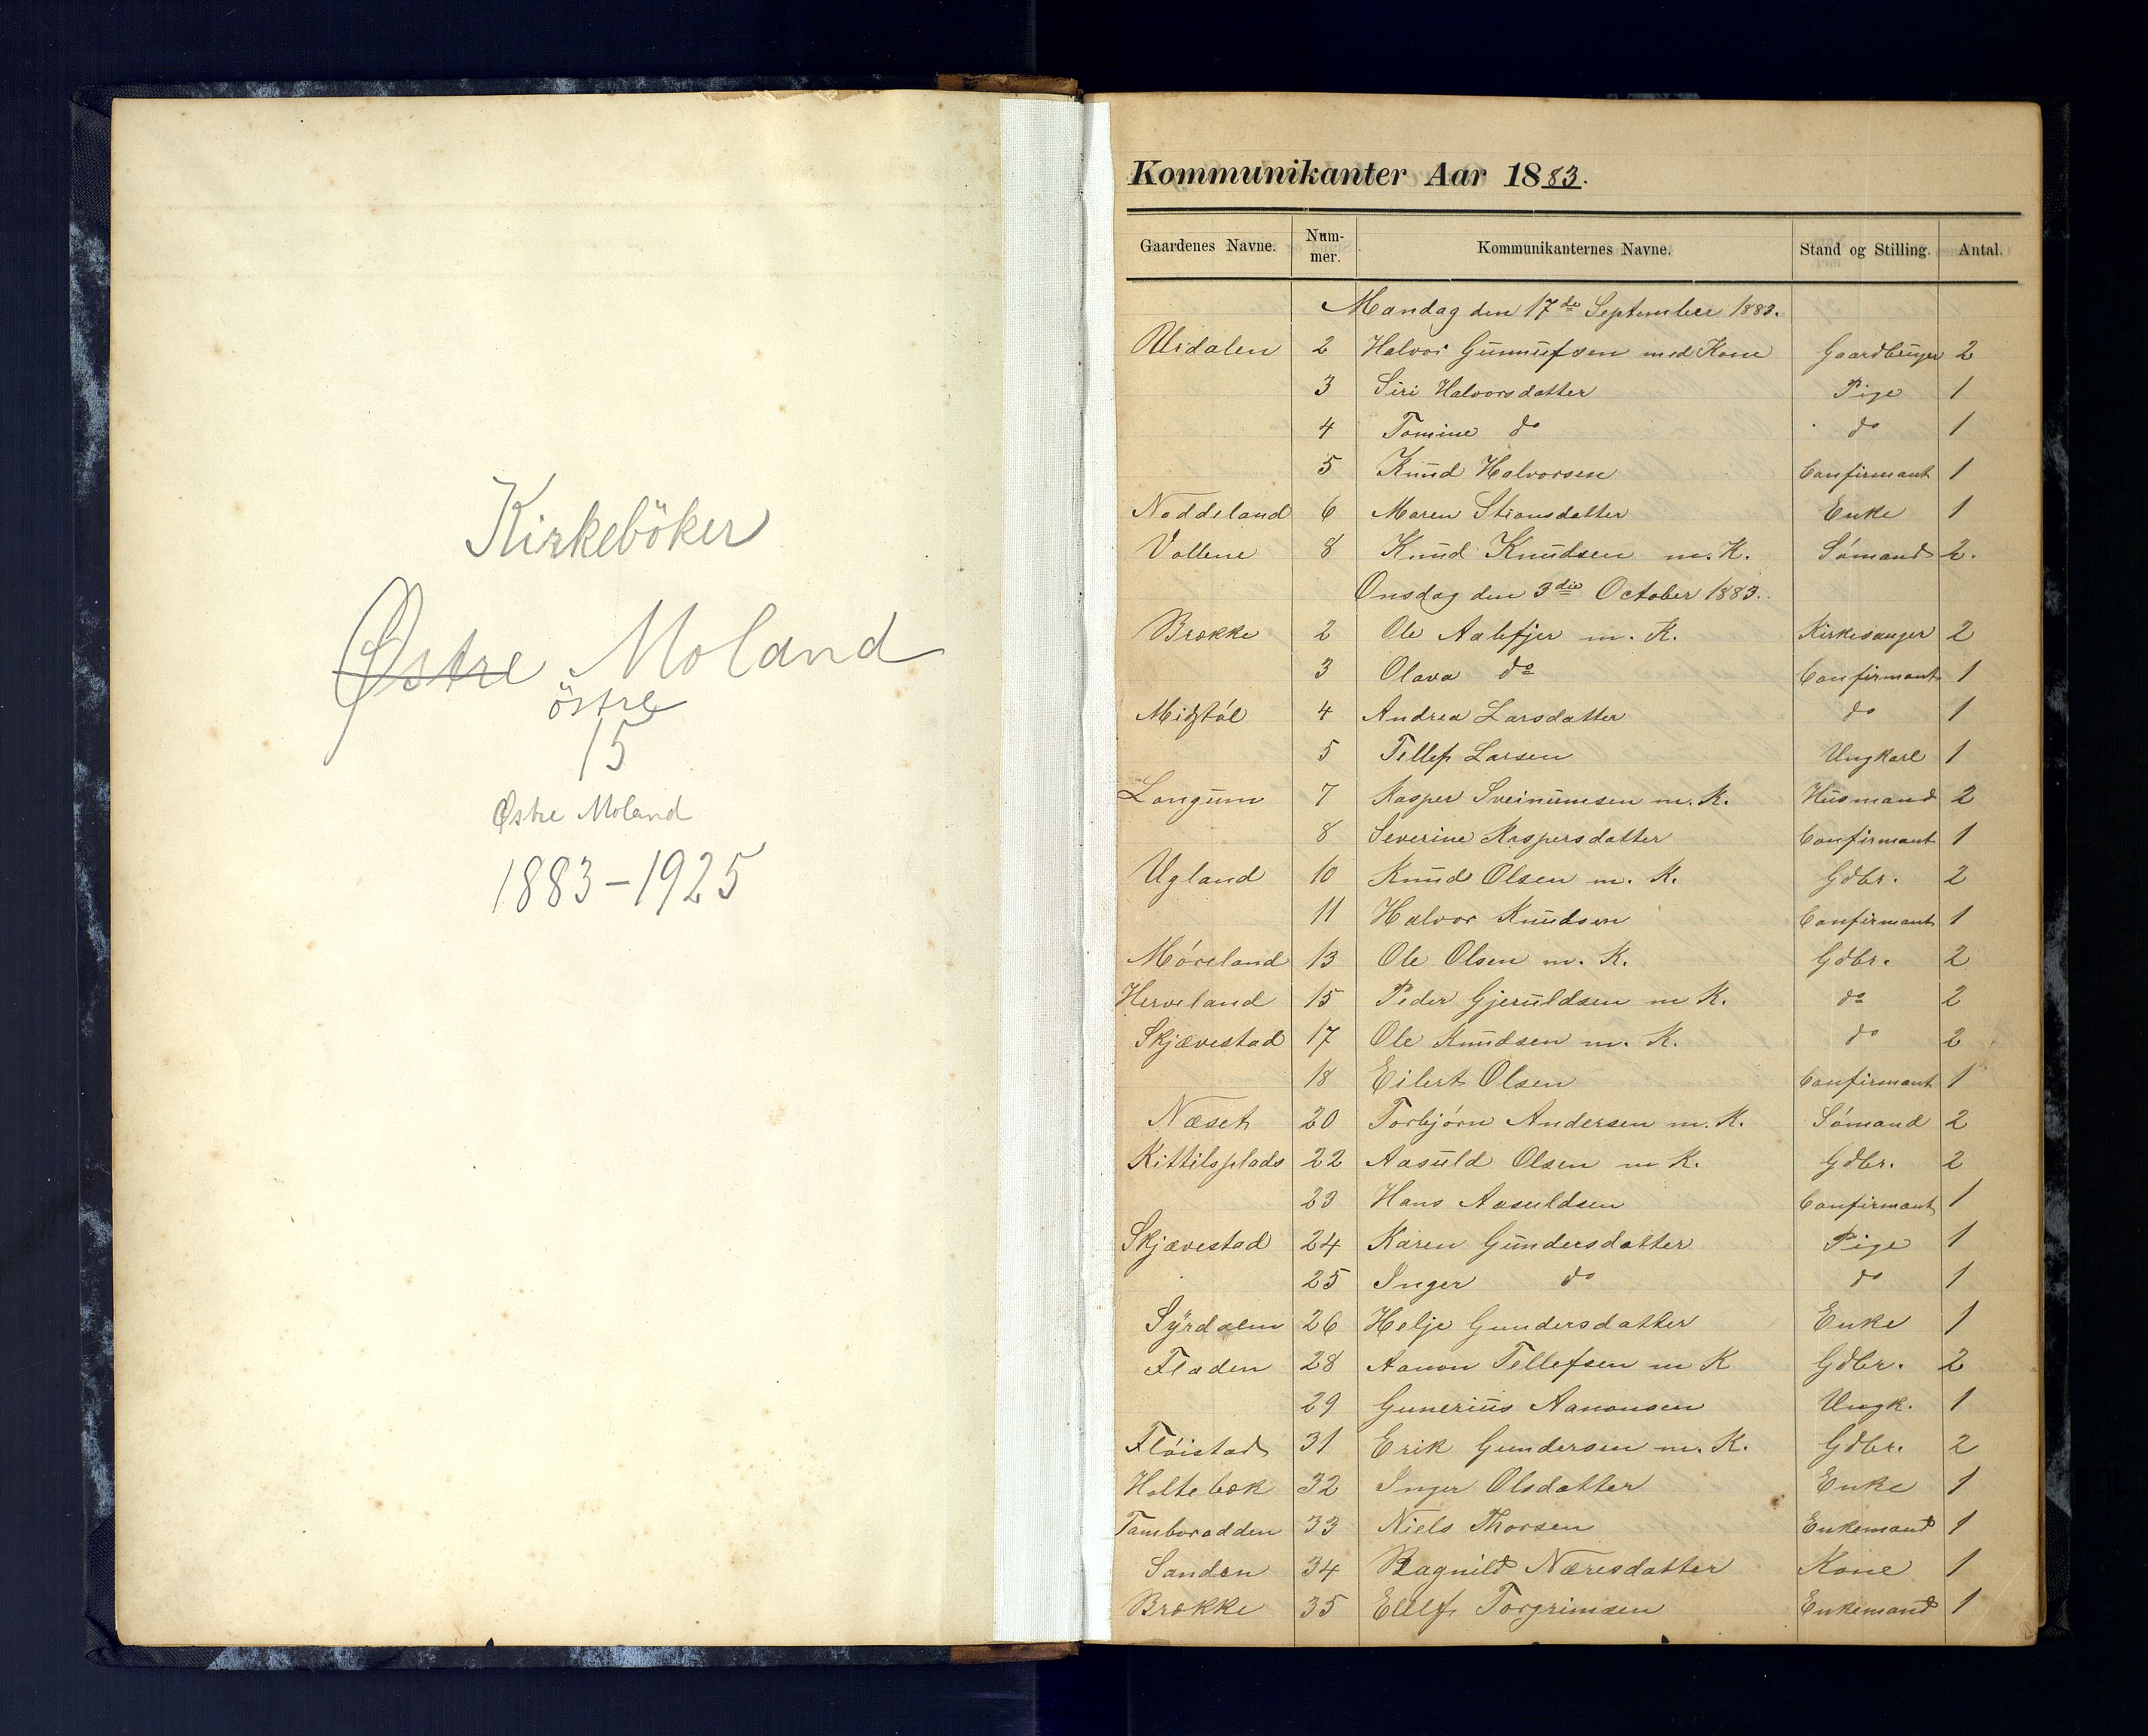 Kirkeböker
Østre Moland
östre
15
Østre Moland
1883-1925
Kommunikanter Aar 1883.
Gaardenes Navne. Num-mer. Kommunikanternes Navne. Stand og Stilling. Antal.
Mandag den 17de September 1883.
2 Halvor Gunnufsen med Kone Gaardbruger 2
3 Siri Halvorsdatter Pige 1
4 Tomine do do 1
5 Knud Halvorsen Confirmant 1
Noddeland 6 Maren Stiansdatter Enke 1
Vollene 8 Knud Knudsen m. K. Sómand 2.
Onsdag den 3die October 1883.
Brække 2 Ole m. K. Kirkesanger 2
3 Olava do Confirmant 1
4 Andrea Larsdatter do 1
5 Tellef Larsen Ungkarl 1
Longum 7 Kasper Sveinumsen m. K. Husmand 2
8 Severine Kaspersdatter Confirmant 1
Ugland 10 Knud Olsen m. K. Gdbr. 2
11 Halvor Knudsen Confirmant 1
Móreland 13 Ole Olsen m. K. Gdbr. 2
Herveland 15 Peder Gjeruldsen m K. do 2
Skjævestad 17 Ole Knudsen m. K. do 2
18 Eilert Olsen Confirmant 1
Næset 20 Torbjórn Andersen m. K. Sómand 2
Kittilsplads 22 Aasuld Olsen m K. Gdbr. 2
23 Hans Aasuldsen Confirmant 1
Skjævestad 24 Karen Gundersdatter Pige 1
25 Inger do do 1
Syrdalen 26 Helje Gundersdatter Enke 1
Fladen 28 Aanon Tellefsen m K Gdbr. 2
29 Gunerius Aanonsen Ungk. 1
Flóistad 31 Erik Gundersen m. K. Gdbr. 2
Holtebæk 32 Inger Olsdatter Enke 1
33 Niels Thorsen Enkemand 1
Sanden 34 Ragnild Næresdatter Kone 1
Brække 35 Ellef Torgrimsen Enkemand 1